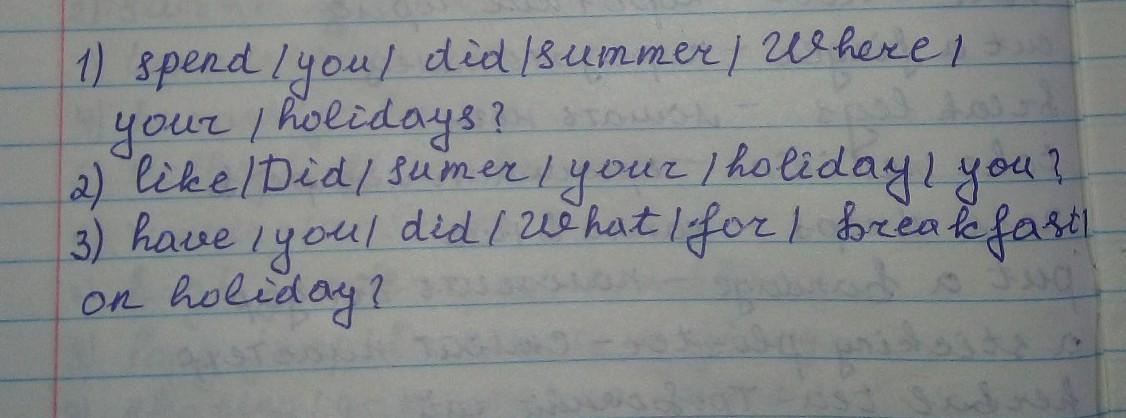 1) spend / you / did / summer / Where /
your / holidays?
2) like / Did / sumer / your / holiday / you?
3) have / you / did / What / for / breakfast /
on holiday?